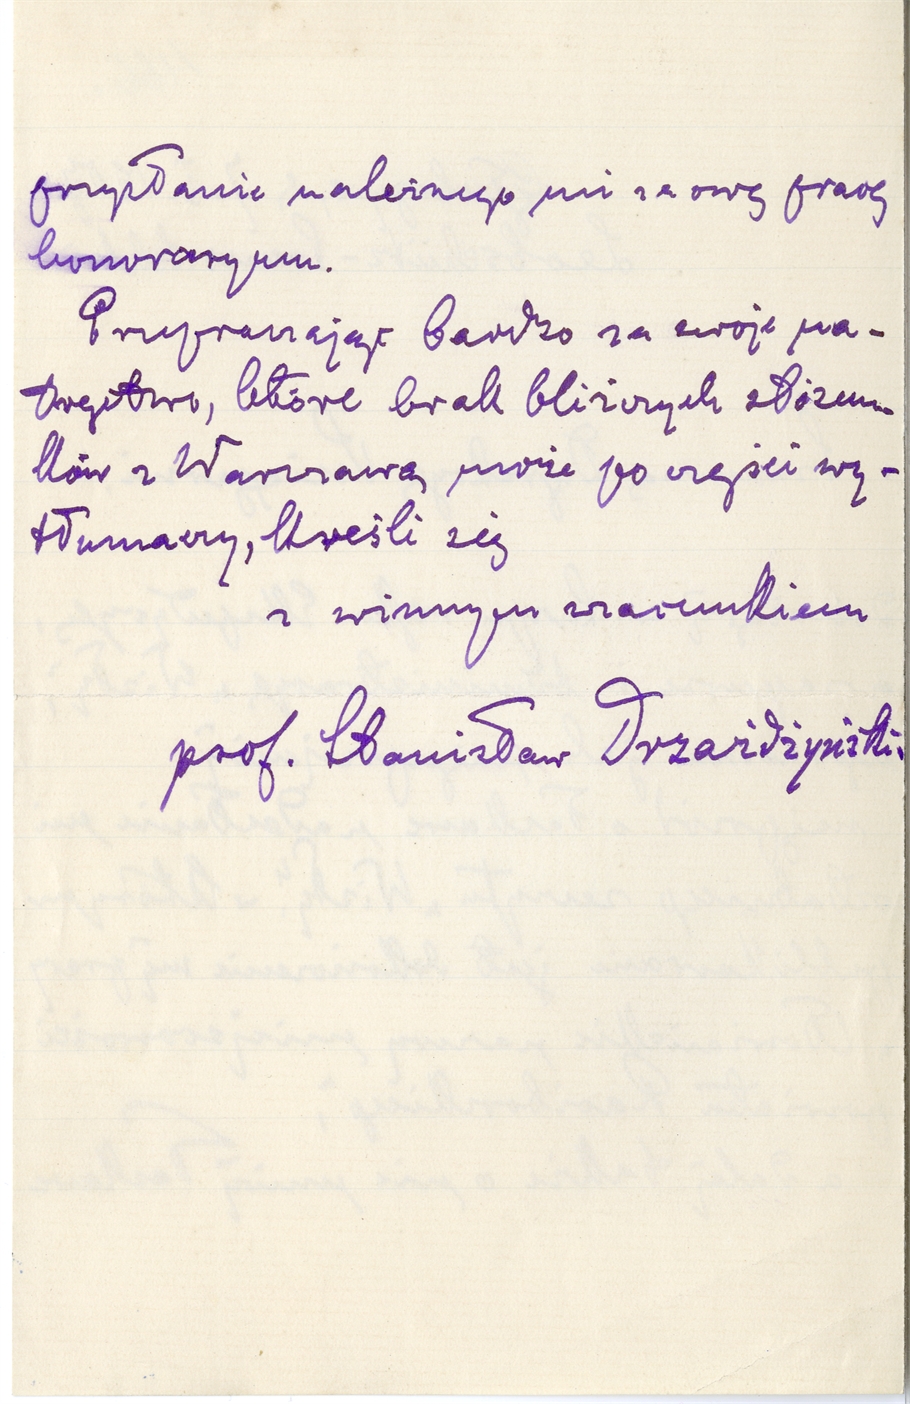 przysłanie należnego mi za ową pracę
honorarjum.
Przepraszając bardzo za swoje na-
tręctwo, które brak bliższych stosun-
ków z Warszawą może po części wy-
tłumaczy, kreśli się
z winnym szacunkiem
prof. Stanisław Drzażdżyński.